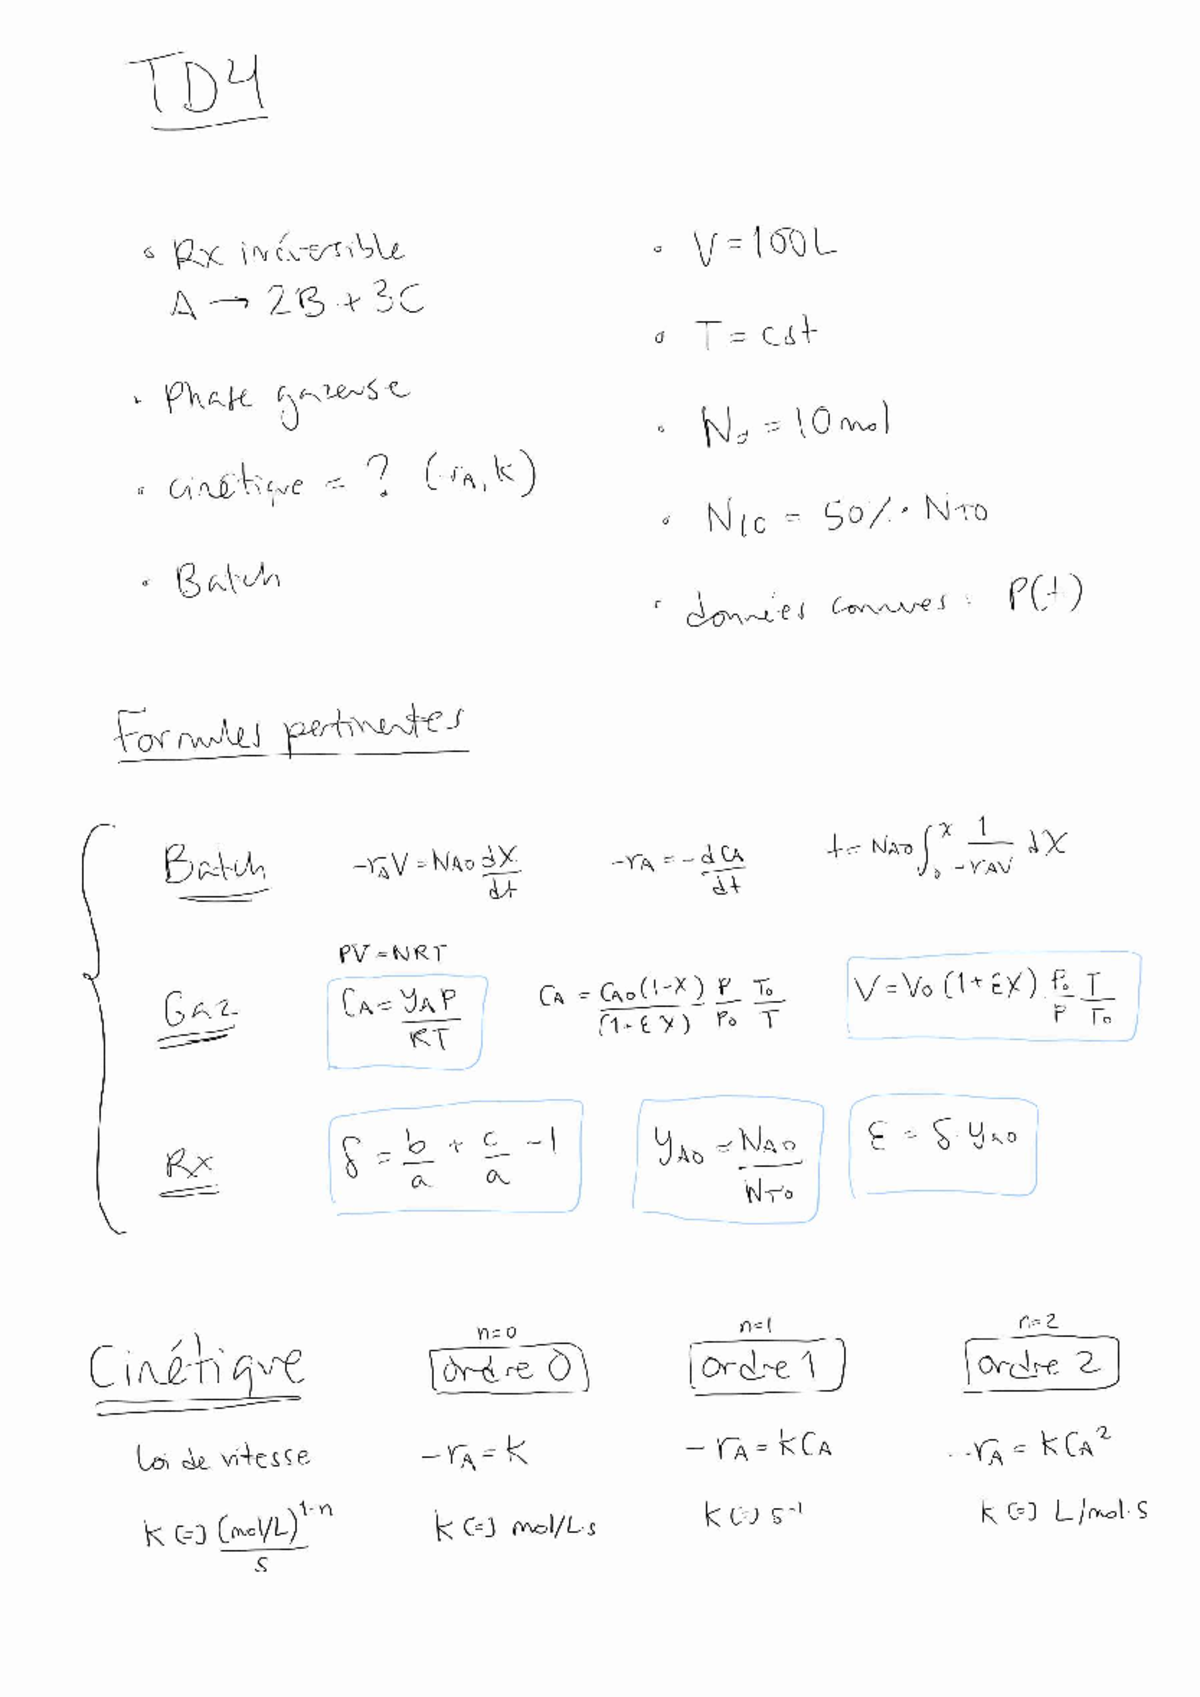 TD4
• Rx irréversible
A → 2B + 3C
• Phase gazeuse
• cinétique = ? (-rA, k)
• Batch
• V = 100L
• T = cst
• No = 10 mol
• NIO = 50% • NTO
• données connues : P(t)
Formules pertinentes
Batch -rAV = NAO dX/dt -rA = -dCA/dt t = NAO ∫₀ˣ 1/-rAV dX
PV = NRT
Gaz CA = yAP/RT CA = CAO(1-X)/(1+EX) P/Po To/T V = Vo (1+EX) Po/P T/To
Rx δ = b/a + c/a - 1 yAO = NAO/NTO ε = δ • yAO
n=0 n=1 n=2
Cinétique ordre 0 ordre 1 ordre 2
Loi de vitesse -rA = k -rA = kCA -rA = kCA²
k [=] (mol/L)^1-n/s k [=] mol/L•s k [=] s⁻¹ k [=] L/mol•s